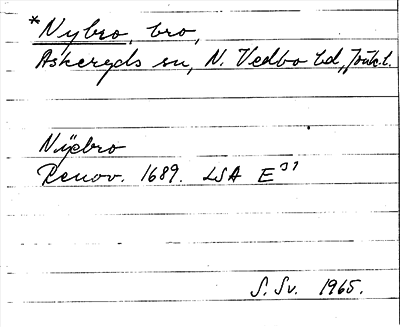 *Nybro, bro,
Askeryds sn, N. Vedbo hd, Jönk. l.
Nÿebro
Renov. 1689. LSA E³¹
S. Sv. 1965.